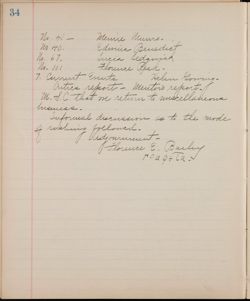 34
No. 41 - Mennie Munro.
No 40. Edwina Benedict
No. 67. Sedgwick
No. 111 Florence
7. Current Events Helen
Critics report - Mentors report.
M. S. C. that we return to miscellaneous
business.
Informal discussion as to the mode
of rushing followed.
Adjournment -
Florence E. Bailey